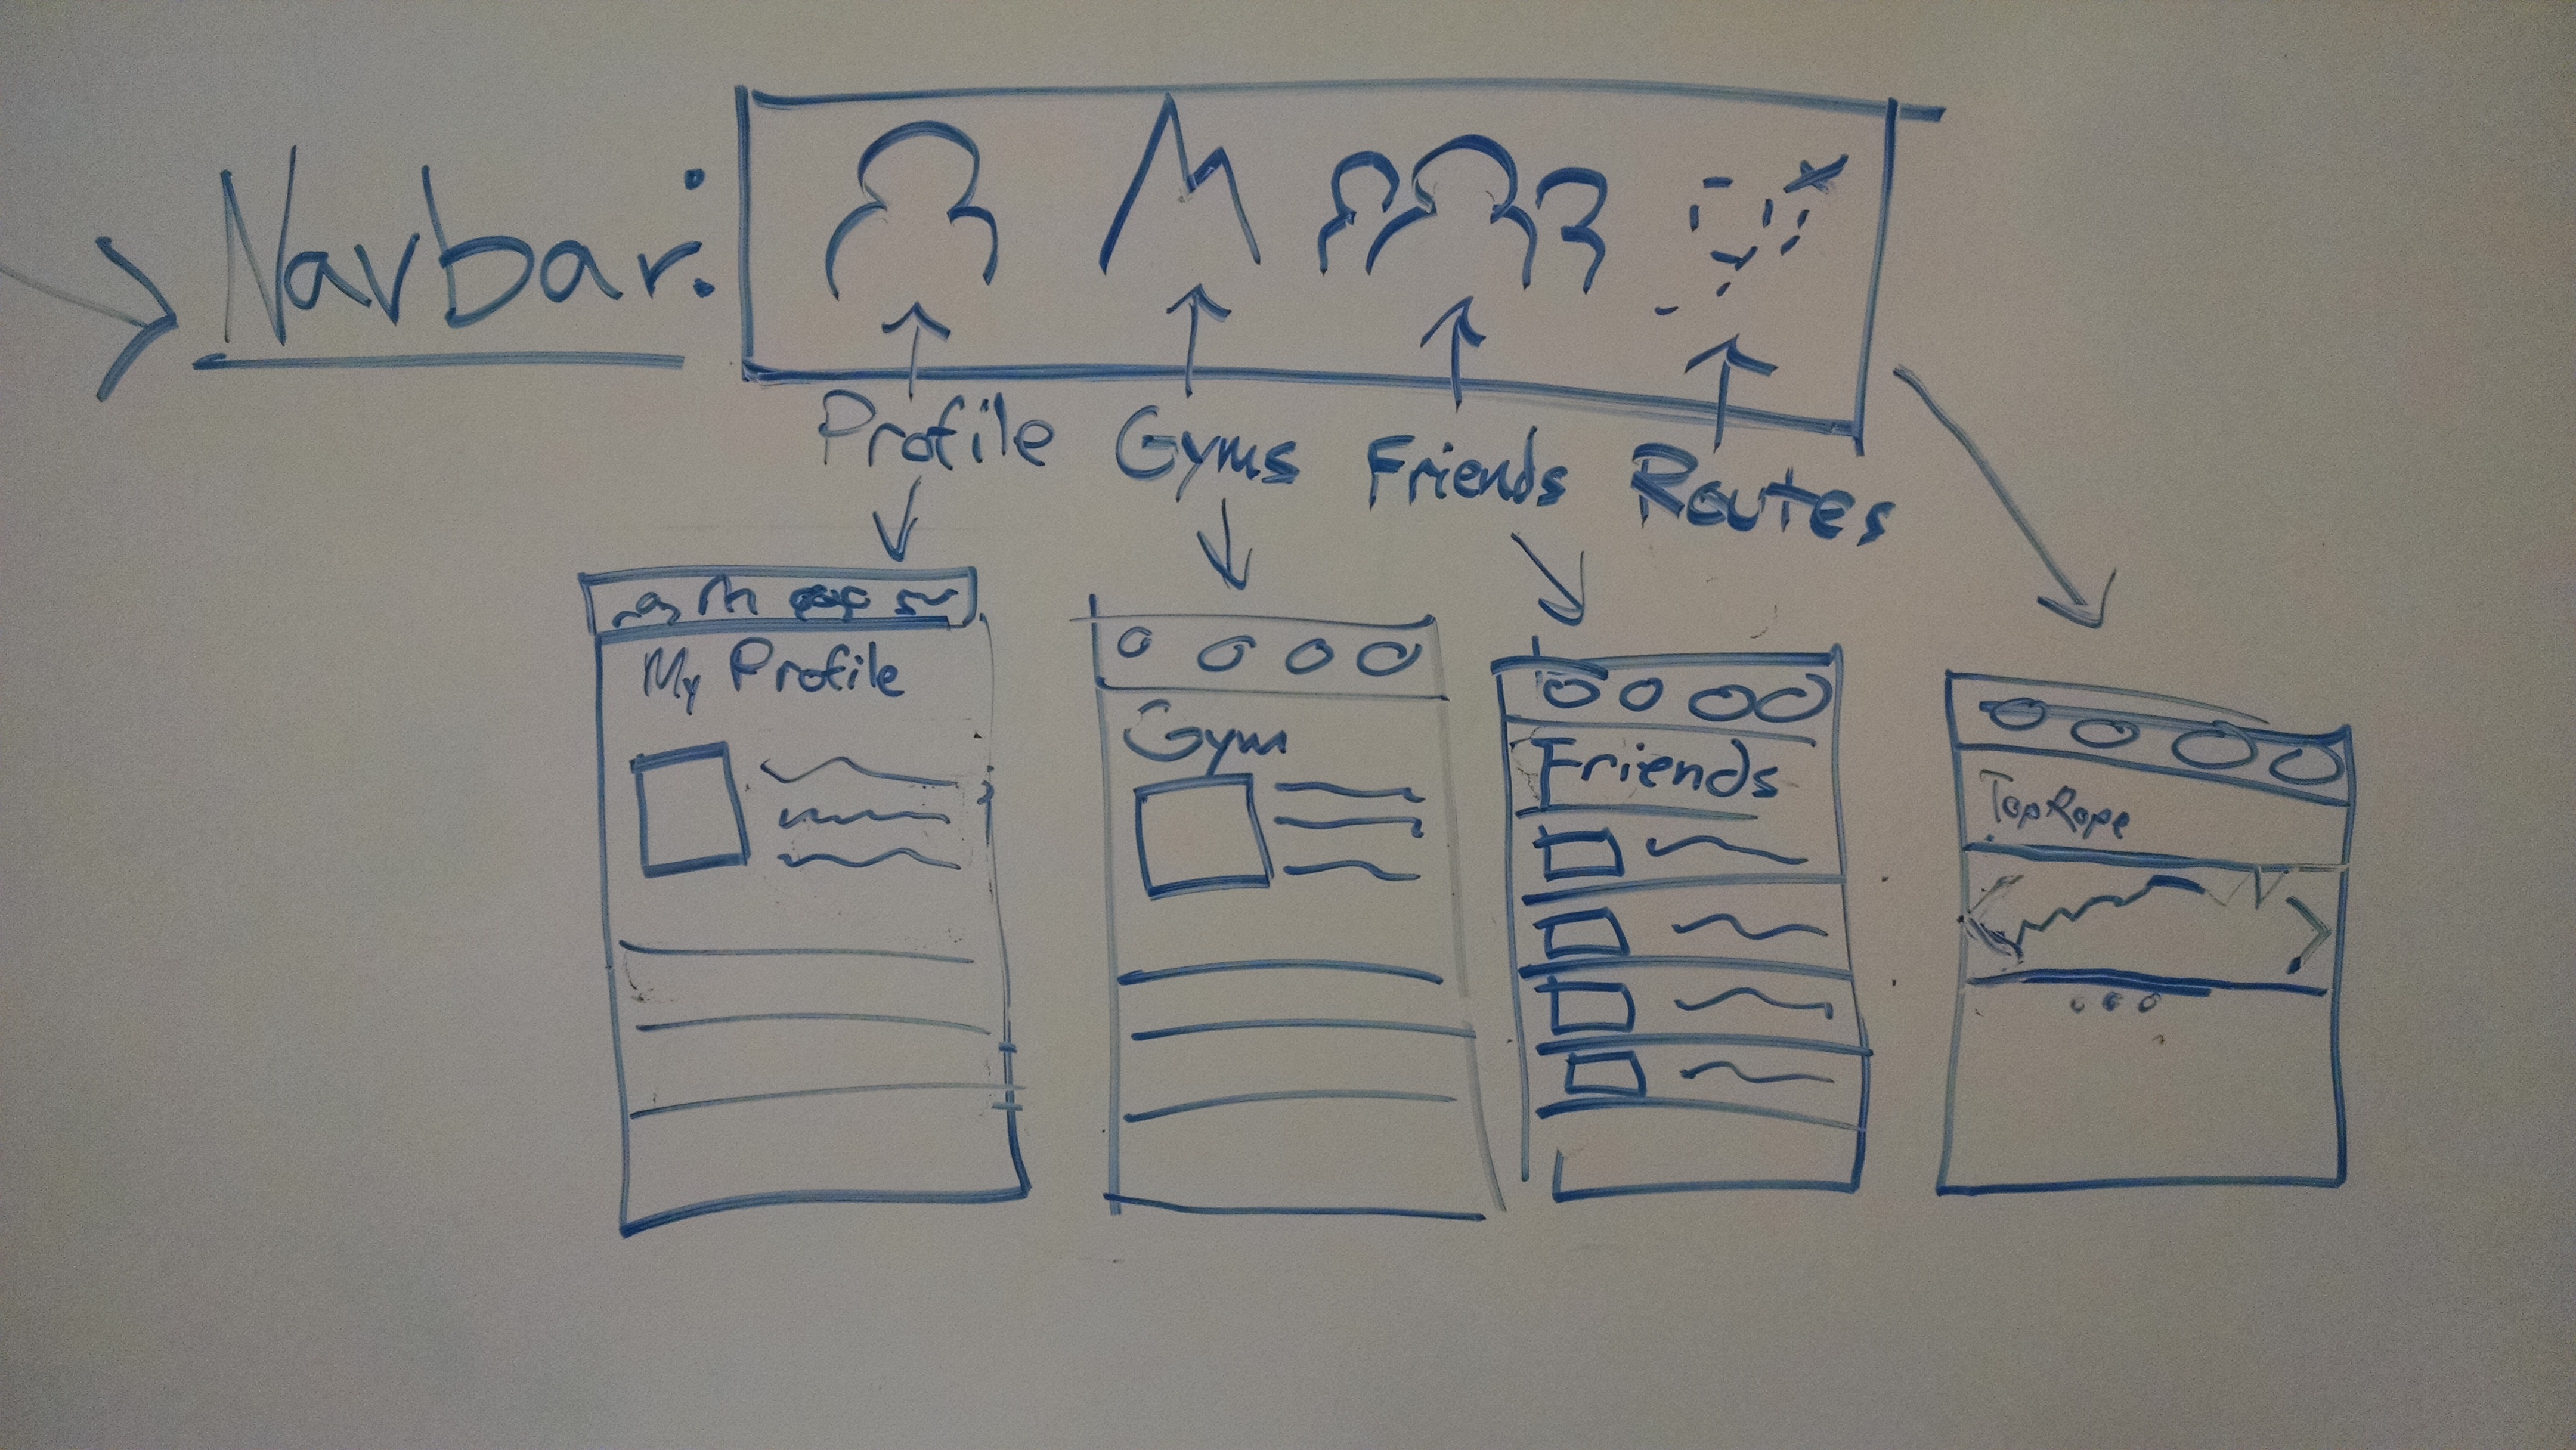 Navbar:
Profile Gyms Friends Routes
My Profile
Gym
Friends
TopRope